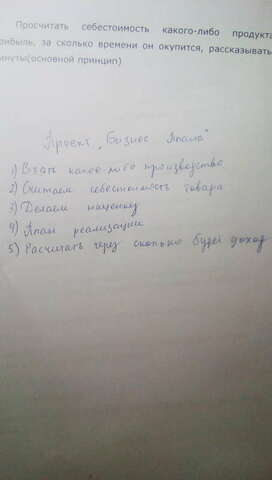 Просчитать себестоимость какого-либо продукта
рибыль, за сколько времени он окупится, рассказывать
инуты(основной принцип)
Проект „Бизнес плана"
1) Взять какое-либо производство
2) Считаем себестоимость товара
3) Делаем наценку
4) План реализации
5) Расчитать через сколько будет доход